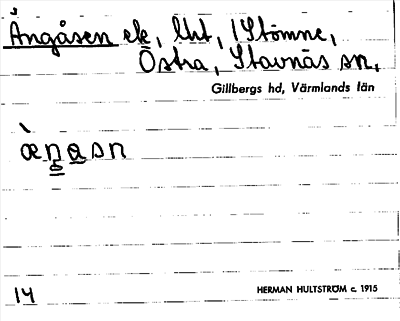 Ängåsen ek, lht, i Stömne,
Östra, Stavnäs sn.
Gillbergs hd, Värmlands län
æŋasn
14
HERMAN HULTSTRÖM c. 1915